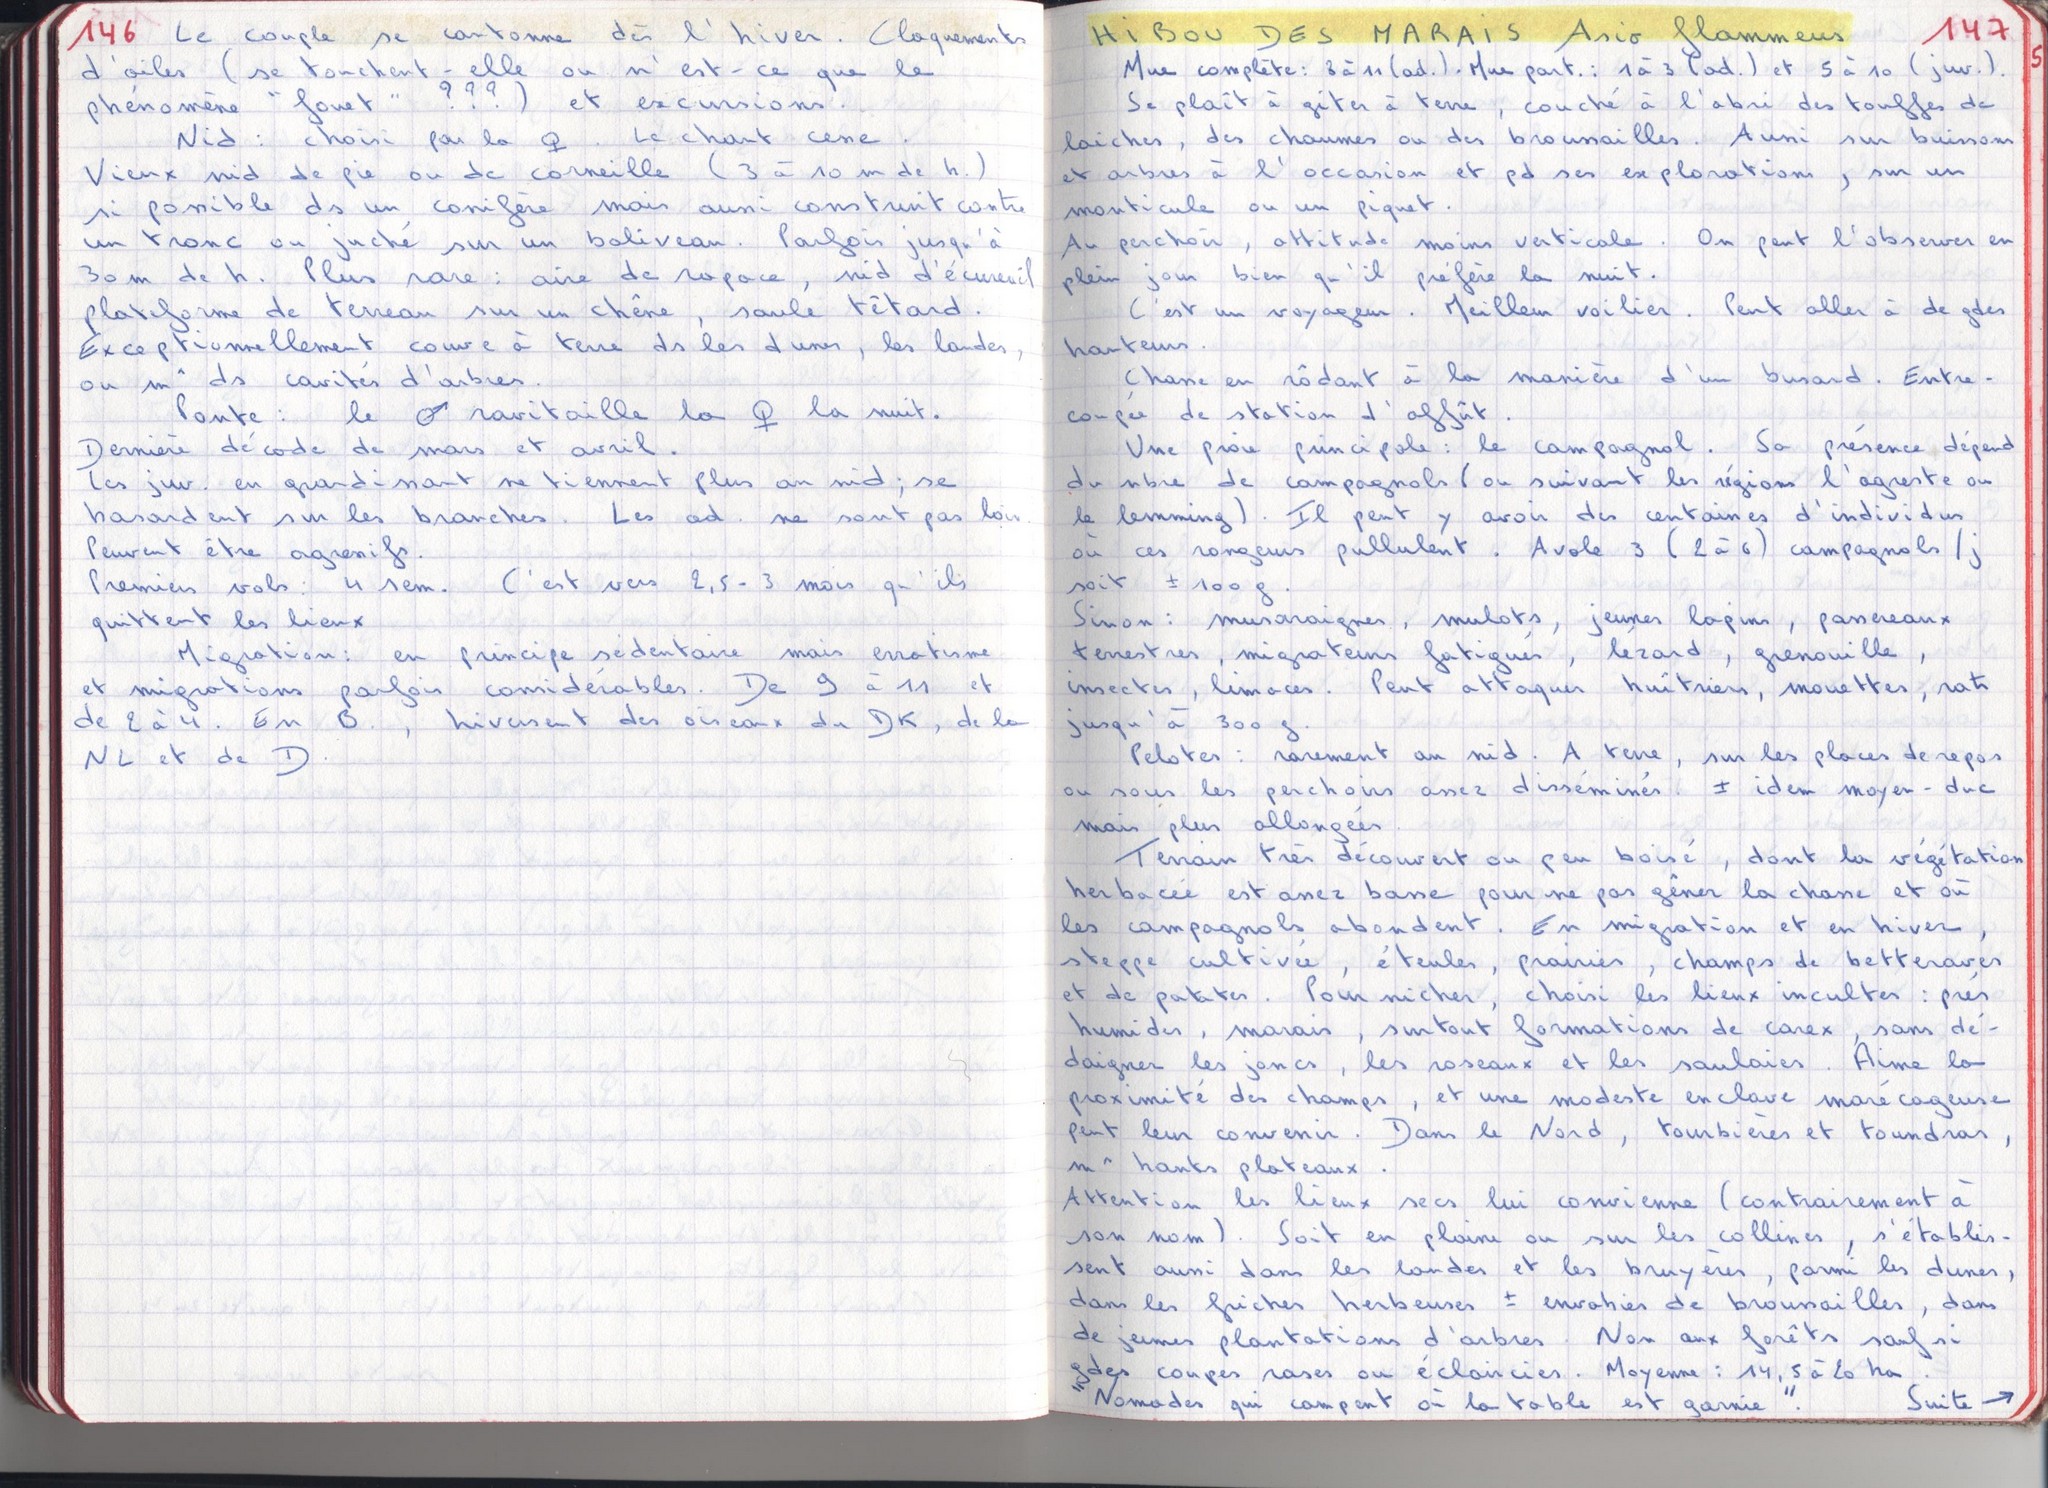 146 Le couple se cantonne dès l'hiver. Claquements
d'ailes (se touchent-elle ou n'est-ce que le
phénomène "fouet" ???) et excursions.
Nid : choisi par la ♀. Le chant cesse.
Vieux nid de pie ou de corneille (3 à 10 m de h.)
si possible ds un conifère mais aussi construit contre
un tronc ou juché sur un baliveau. Parfois jusqu'à
30 m de h. Plus rare : aire de rapace, nid d'écureuil
plateforme de terreau sur un chêne, saule têtard.
Exceptionnellement couve à terre ds les dunes, les landes,
ou m^ ds cavités d'arbres.
Ponte : le ♂ ravitaille la ♀ la nuit.
Dernière décade de mars et avril.
Les juv. en grandissant ne tiennent plus au nid ; se
hasardent sur les branches. Les ad. ne sont pas loin.
Peuvent être agressifs.
Premiers vols : 4 sem. C'est vers 2,5-3 mois qu'ils
quittent les lieux
Migration : en principe sédentaire mais erratisme
et migrations parfois considérables. De 9 à 11 et
de 2 à 4. En B., hivernent des oiseaux du DK, de la
NL et de D.
HIBOU DES MARAIS Asio flammeus 147
5
Mue complète : 3 à 11 (ad.). Mue part. : 1 à 3 (ad.) et 5 à 10 (juv.).
Se plaît à gîter à terre, couché à l'abri des touffes de
laiches, des chaumes ou des broussailles. Aussi sur buissons
et arbres à l'occasion et pd ses explorations, sur un
monticule ou un piquet.
Au perchoir, attitude moins verticale. On peut l'observer en
plein jour bien qu'il préfère la nuit.
C'est un voyageur. Meilleur voilier. Peut aller à de gdes
hauteurs.
Chasse en rôdant à la manière d'un busard. Entre-
coupée de station d'affût.
Une proie principale : le campagnol. Sa présence dépend
du nbre de campagnols (ou suivant les régions l'agreste ou
le lemming). Il peut y avoir des centaines d'individus
où ces rongeurs pullulent. Avale 3 (2 à 6) campagnols/j
soit ± 100 g.
Sinon : musaraignes, mulots, jeunes lapins, passereaux
terrestres, migrateurs fatigués, lézard, grenouille,
insectes, limaces. Peut attaquer huîtriers, mouettes, rats
jusqu'à 300 g.
Pelotes : rarement au nid. A terre, sur les places de repos
ou sous les perchoirs assez disséminés. ± idem moyen-duc
mais plus allongées.
Terrain très découvert ou peu boisé, dont la végétation
herbacée est assez basse pour ne pas gêner la chasse et où
les campagnols abondent. En migration et en hiver,
steppe cultivée, éteules, prairies, champs de betteraves
et de patates. Pour nicher, choisi les lieux incultes : prés
humides, marais, surtout formations de carex, sans dé-
daigner les joncs, les roseaux et les saulaies. Aime la
proximité des champs, et une modeste enclave marécageuse
peut leur convenir. Dans le Nord, tourbières et toundras,
m^ hauts plateaux.
Attention les lieux secs lui convienne (contrairement à
son nom). Soit en plaine ou sur les collines, s'établis-
sent aussi dans les landes et les bruyères, parmi les dunes,
dans les friches herbeuses ± envahies de broussailles, dans
de jeunes plantations d'arbres. Non aux forêts sauf si
gdes coupes rases ou éclaircies. Moyenne : 14,5 à 20 ha.
"Nomades qui campent où la table est garnie". Suite →